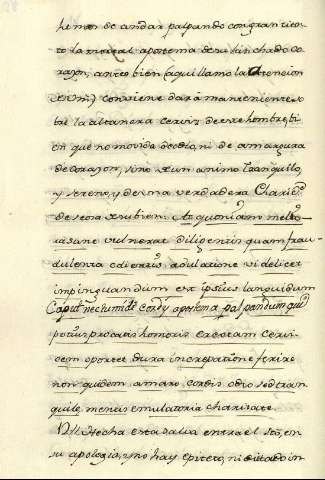 hemos de andar palpando con gran tien
to la mortal apostema de su hinchado co
razon; antes bien (aqui llamo la atension
de Vm.) conviene dar a manteniente so
bre la altanera cerviz de ese hombre, bi
en que no movido de odio, ni de amargura
de corazon, sino de un animo tranquilo,
y sereno, y de una verdadera Charid.d
deseosa de su bien. At quoniam melio
ra sunt vulnera diligentis quam frau
dulenta odientis adulatione videlicet
impinguandum est ipsius languidum
Caput, nec tumidi cordis apostema palpandum quid
potius procacis honoris erectam cervi
cem oportet dura increpatione ferire
non quidem amaro cordis odio sed tran
quile mentis emulatoria charitate.
Hecha esta salva entra el Sto, en
su apologia, y no hay epiteto, ni dictado in